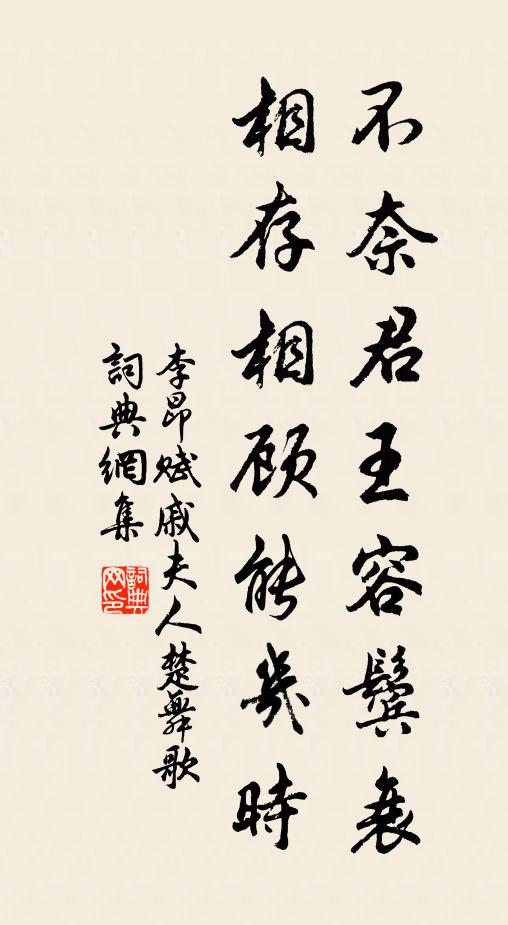 不奈君王容鬓衰
相存相顾能幾時
李昂赋戚夫人楚舞歌
詞典網集
詞典网印